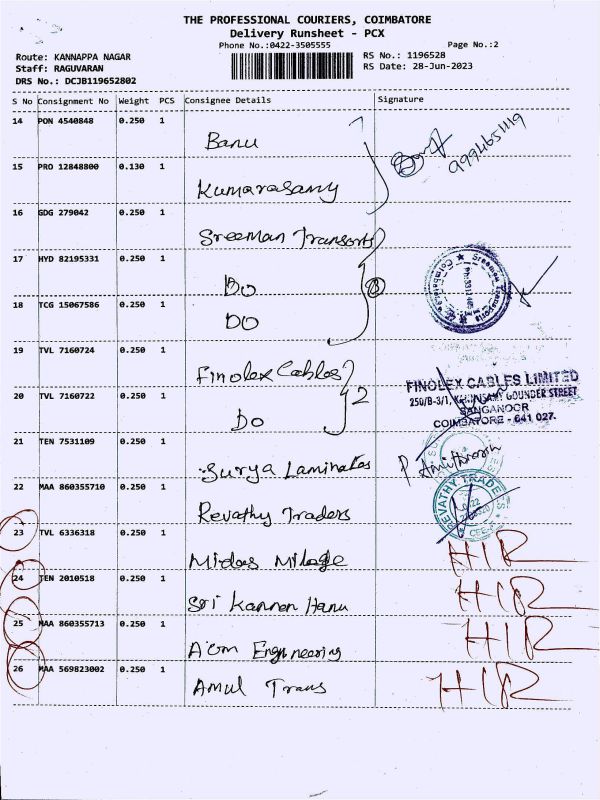 THE PROFESSIONAL COURIERS, COIMBATORE
Delivery Runsheet - PCX
Phone No.:0422-3505555 Page No.:2
Route: KANNAPPA NAGAR RS No.: 1196528
Staff: RAGUVARAN RS Date: 28-Jun-2023
DRS No.: DCJB119652802
S No Consignment No Weight PCS Consignee Details Signature
14 PON 4540848 0.250 1 Banu
15 PRO 12848800 0.130 1 Kumarasamy
16 GDG 279042 0.250 1 Sreeman Transorts
17 HYD 82195331 0.250 1 Do
18 TCG 15067586 0.250 1 DO
19 TVL 7160724 0.250 1 Finolex Cables
20 TVL 7160722 0.250 1 Do 2
FINOLEX CABLES LIMITED
250/B-3/1, GOUNDER STREET
SANGANOOR
COIMBATORE - 641 027.
21 TEN 7531109 0.250 1 Surya Laminates
22 MAA 860355710 0.250 1 Revathy Traders
REVATHY TRADERS
23 TVL 6336318 0.250 1 Midas Milage HIR
24 TEN 2010518 0.250 1 Sri Kannan Hanu HIR
25 MAA 860355713 0.250 1 A'om Engineering HIR
26 MAA 569823002 0.250 1 Amul Trans HIR